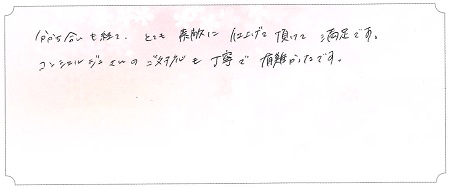 分かち合いも経て、とても素敵に仕上げて頂けて満足です。
コンシェルジュさんのご対応も丁寧で有難かったです。